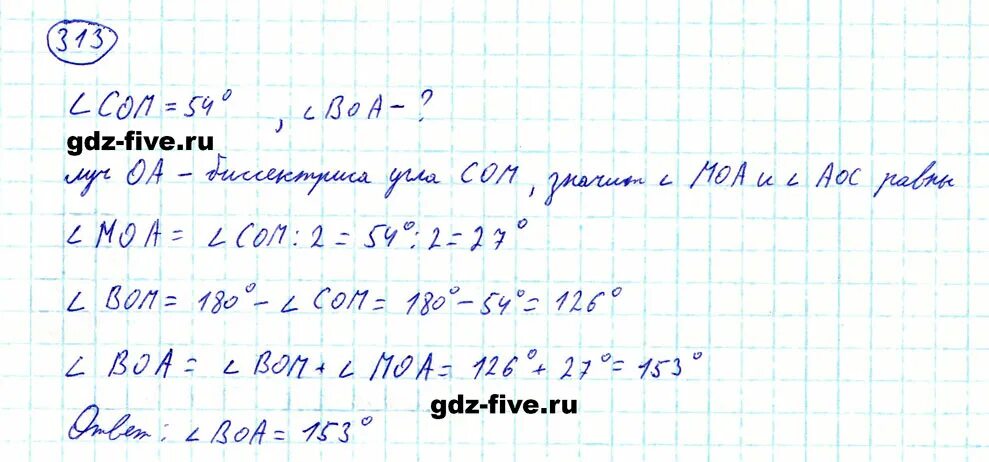 313
∠COM = 54°, ∠BOA - ?
gdz-five.ru
луч OA - биссектриса угла COM, значит ∠ MOA и ∠ AOC равны
∠ MOA = ∠ COM : 2 = 54° : 2 = 27°
∠ BOM = 180° - ∠ COM = 180° - 54° = 126°
∠ BOA = ∠ BOM + ∠ MOA = 126° + 27° = 153°
gdz-five.ru
Ответ: ∠ BOA = 153°